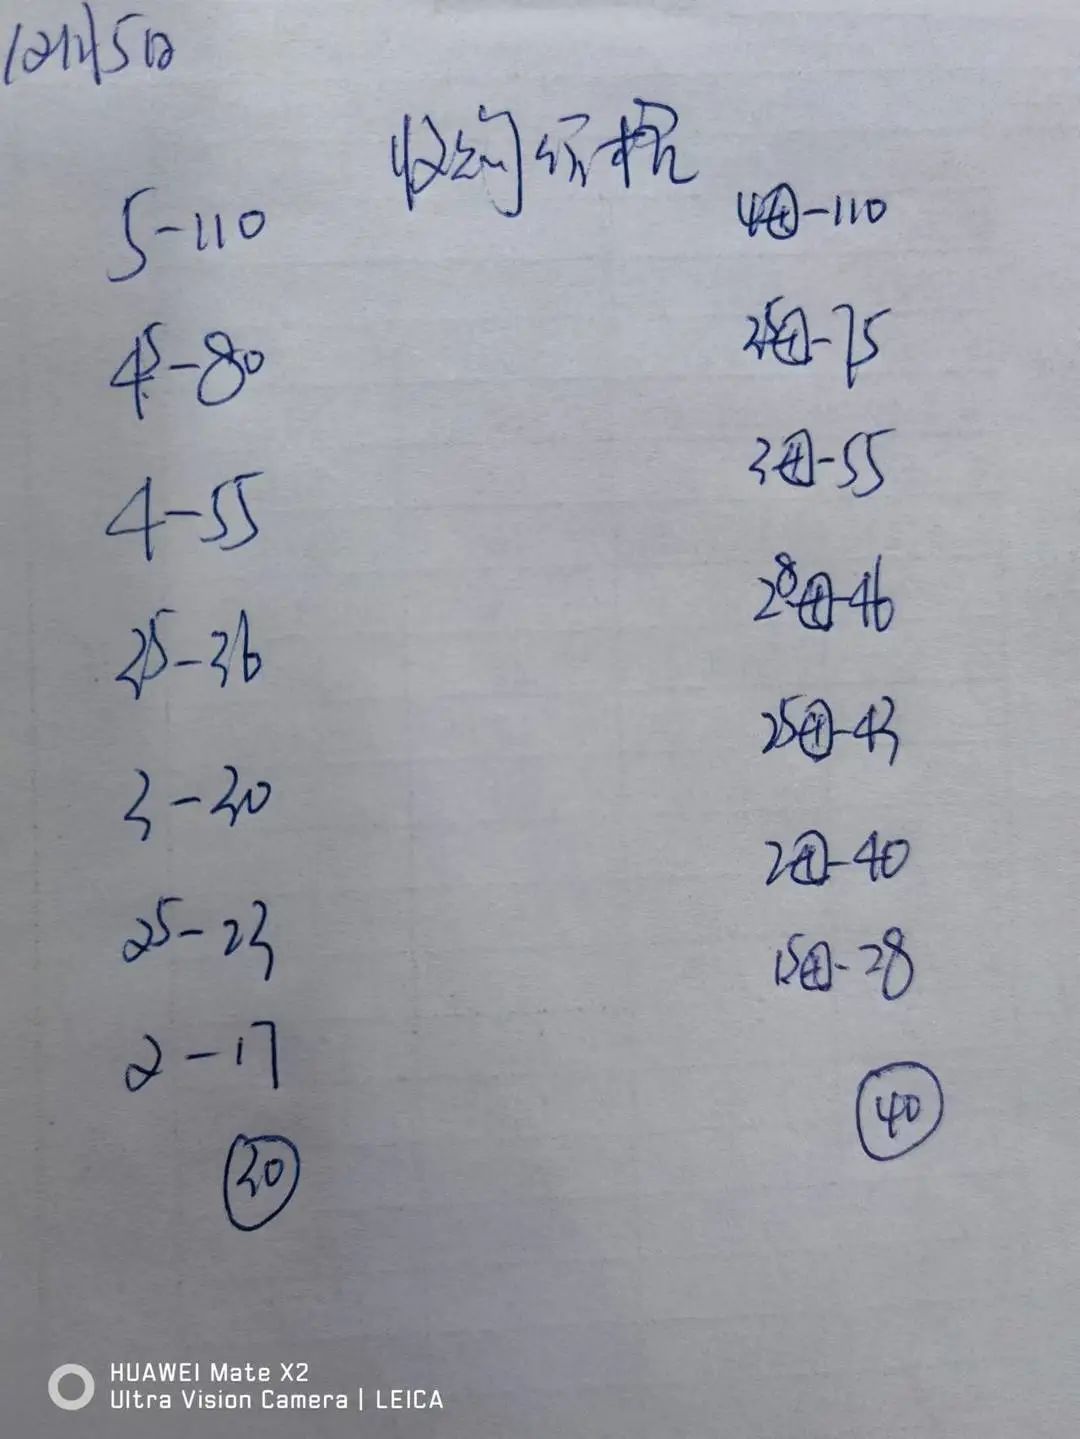 12月15日
收蟹价格
5-110
45-80
4-55
35-36
3-30
25-23
2-17
30
4母-110
35母-75
3母-55
28母-46
25母-43
2母-40
15母-28
40
HUAWEI Mate X2
Ultra Vision Camera | LEICA